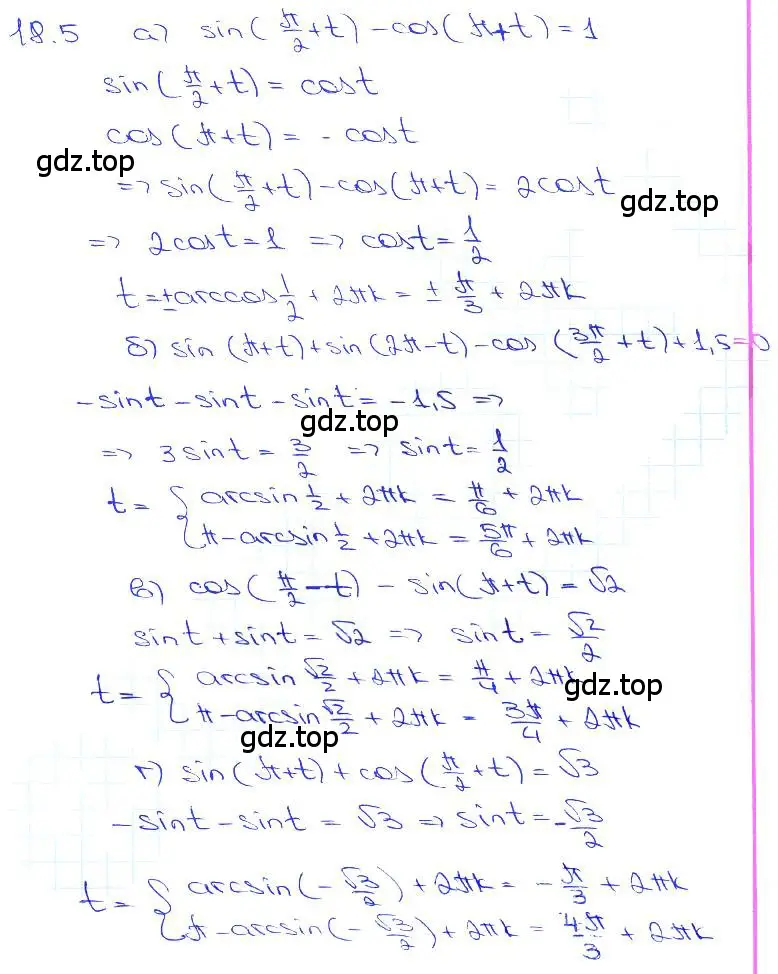 18.5 а) sin(π/2+t) - cos(π+t) = 1
sin(π/2+t) = cost
cos(π+t) = - cost
gdz.top
=> sin(π/2+t) - cos(π+t) = 2cost
gdz.top
=> 2cost = 1 => cost = 1/2
t = ±arccos 1/2 + 2πk = ± π/3 + 2πk
б) sin(π+t) + sin(2π-t) - cos(3π/2+t) + 1,5 = 0
-sint - sint - sint = -1,5 =>
gdz.top
=> 3sint = 3/2 => sint = 1/2
t = { arcsin 1/2 + 2πk = π/6 + 2πk
π - arcsin 1/2 + 2πk = 5π/6 + 2πk
в) cos(π/2 - t) - sin(π+t) = √2
sint + sint = √2 => sint = √2/2
t = { arcsin √2/2 + 2πk = π/4 + 2πk
gdz.top
π - arcsin √2/2 + 2πk = 3π/4 + 2πk
gdz.top
г) sin(π+t) + cos(π/2+t) = √3
-sint - sint = √3 => sint = -√3/2
t = { arcsin(-√3/2) + 2πk = -π/3 + 2πk
π - arcsin(-√3/2) + 2πk = 4π/3 + 2πk